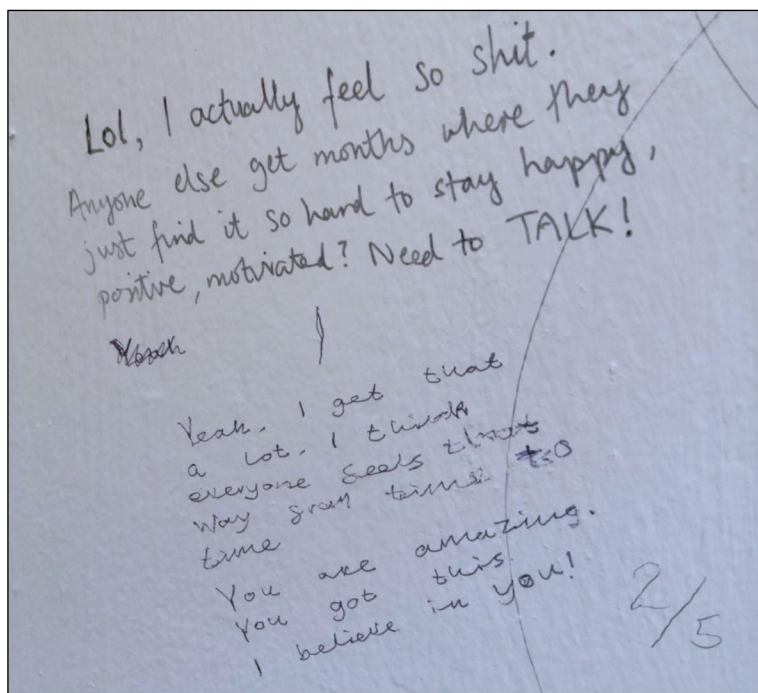 Lol, I actually feel so shit.
Anyone else get months where they
just find it so hard to stay happy,
positive, motivated? Need to TALK!
Yeah. I get that
a lot. I think
everyone feels that
way from time to
time
You are amazing.
You got this
I believe in you!
2/5